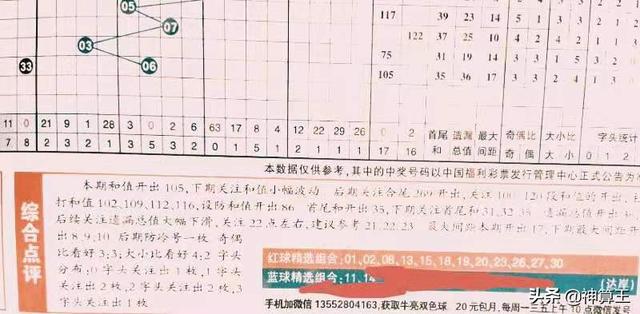 05
07
03
06
33
117 39 23 10
122 37 25 10
75 31 19 14
105 35 36 17
11 0 21 9 1 28 3 0 2 6 63 17 8 4 12 22 29 26 0 2 首尾和 遗漏总值 最大间距 奇偶比 大小比 字头统计
17 16
本数据仅供参考,其中的中奖号码以中国福利彩票发行管理中心正式公告为
综合点评
本期和值开出105,下期关注和值小幅波动 后期关注合尾269开出,关注100-120段和值的开出,主
打和值102、109、112、116,设防和值开出86 首尾和开出35,下期关注首尾和31、32、35 遗漏总值开出
后续关注遗漏总值大幅下滑,关注22点左右,建议参考21、22、23 最大间距本期开出17,下期最大间距开
出8、9、10 后期防冷号一枚 奇偶
比看好3:3;大小比看好4:2 字头
分布:0字头关注出1枚,1字头
关注出2枚,2字头关注出2枚,3
字头关注出1枚
红球精选组合:01,02,08,13,15,18,19,20,23,26,27,30
蓝球精选组合:11,14
(达岸)
手机加微信13552804163,获取牛亮双色球 20元包月,每周一三五上午10点微信发号
头条@神算王